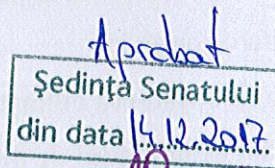 Aprobat
Ședința Senatului
din data 14.12.2017